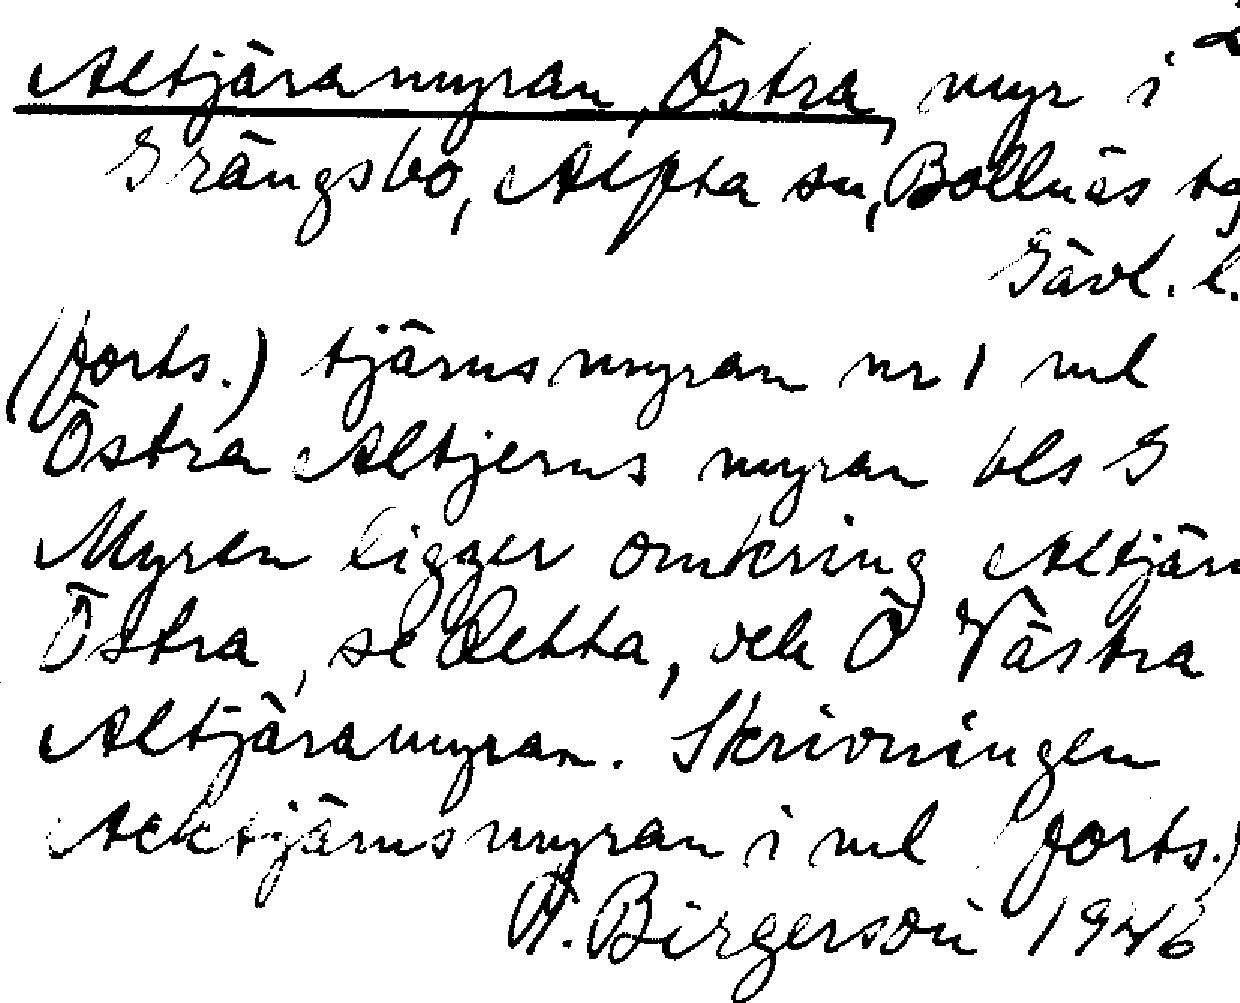 Altjäramyran, Östra, myr i
Grängsbo, Alfta sn, Bollnäs tg
Gävl. l.
(forts.) tjärnsmyran nr 1 ml
Östra Altjerns myran bls G
Myren ligger omkring Altjärn
Östra, se detta, och Ö Västra
Altjäramyran. Skrivningen
Acktjärnsmyran i ml (forts.)
Birgerson 1946